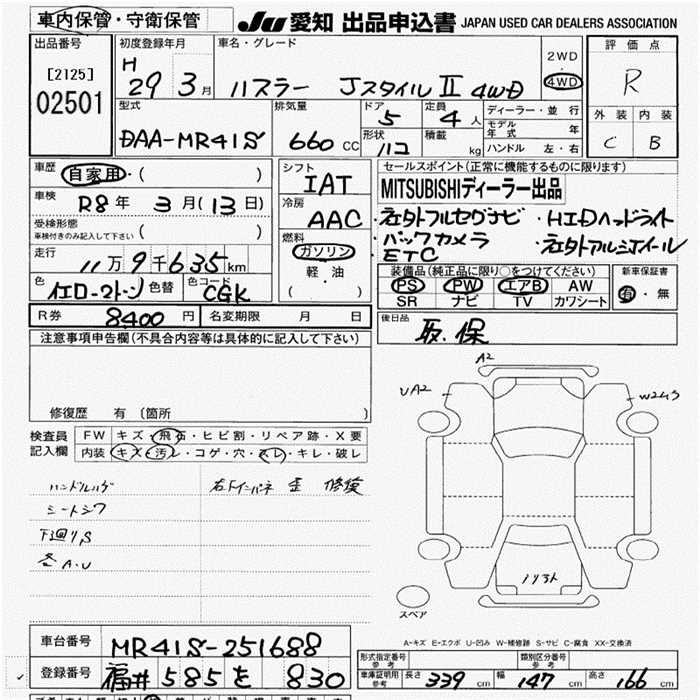 車内保管・守衛保管
JU 愛知 出品申込書 JAPAN USED CAR DEALERS ASSOCIATION
出品番号 初度登録年月 車名・グレード 2WD・4WD 評価点
[2125] 02501
H 29 3月 ハスラー JスタイルⅡ 4WD R
型式 排気量 ドア 5 定員 4人 ディーラー・並行 外装 内装
DAA-MR41S 660 CC 形状 ハコ 積載 kg モデル年式 年 C B
ハンドル 左・右
車歴 自家用・( )
車検 R8年 3月(13日)
受検形態 車検付きのみ記入して下さい ( )
走行 11万9千635km
色 イエロ-2トーン 色替 色コード CGK
シフト IAT
冷房 AAC
燃料 ガソリン
軽・油
( )
セールスポイント(正常に機能するものに限ります)
MITSUBISHIディーラー出品
・社外フルセグナビ ・HIDヘッドライト
・バックカメラ ・社外アルミホイール
ETC
装備品(純正品に限り○をつけてください) 新車保証書
PS PW エアB AW 有・無
SR ナビ TV カワシート
R券 8400円 名変期限 月 日
後日品 取.保
注意事項申告欄(不具合内容等は具体的に記入して下さい)
修復歴 有 (箇所 )
検査員記入欄 FW キズ・飛石・ヒビ割・リペア跡・X要
内装 キズ・汚レ・コゲ・穴・スレ・キレ・破レ
ハンドルハゲ 右下インパネ 歪 修換
シートシワ
下廻りS
各A.U
A2
UA2
W2山3
ノリオト
スペア
A-キズ E-エクボ U-凹み W-補修跡 S-サビ C-腐食 XX-交換済
車台番号 MR41S-251688
登録番号 福井 585 を 830
形式指定番号 参考 類別区分番号 参考
車庫証明用 参考 長さ 339 cm 幅 147 cm 高さ 166 cm